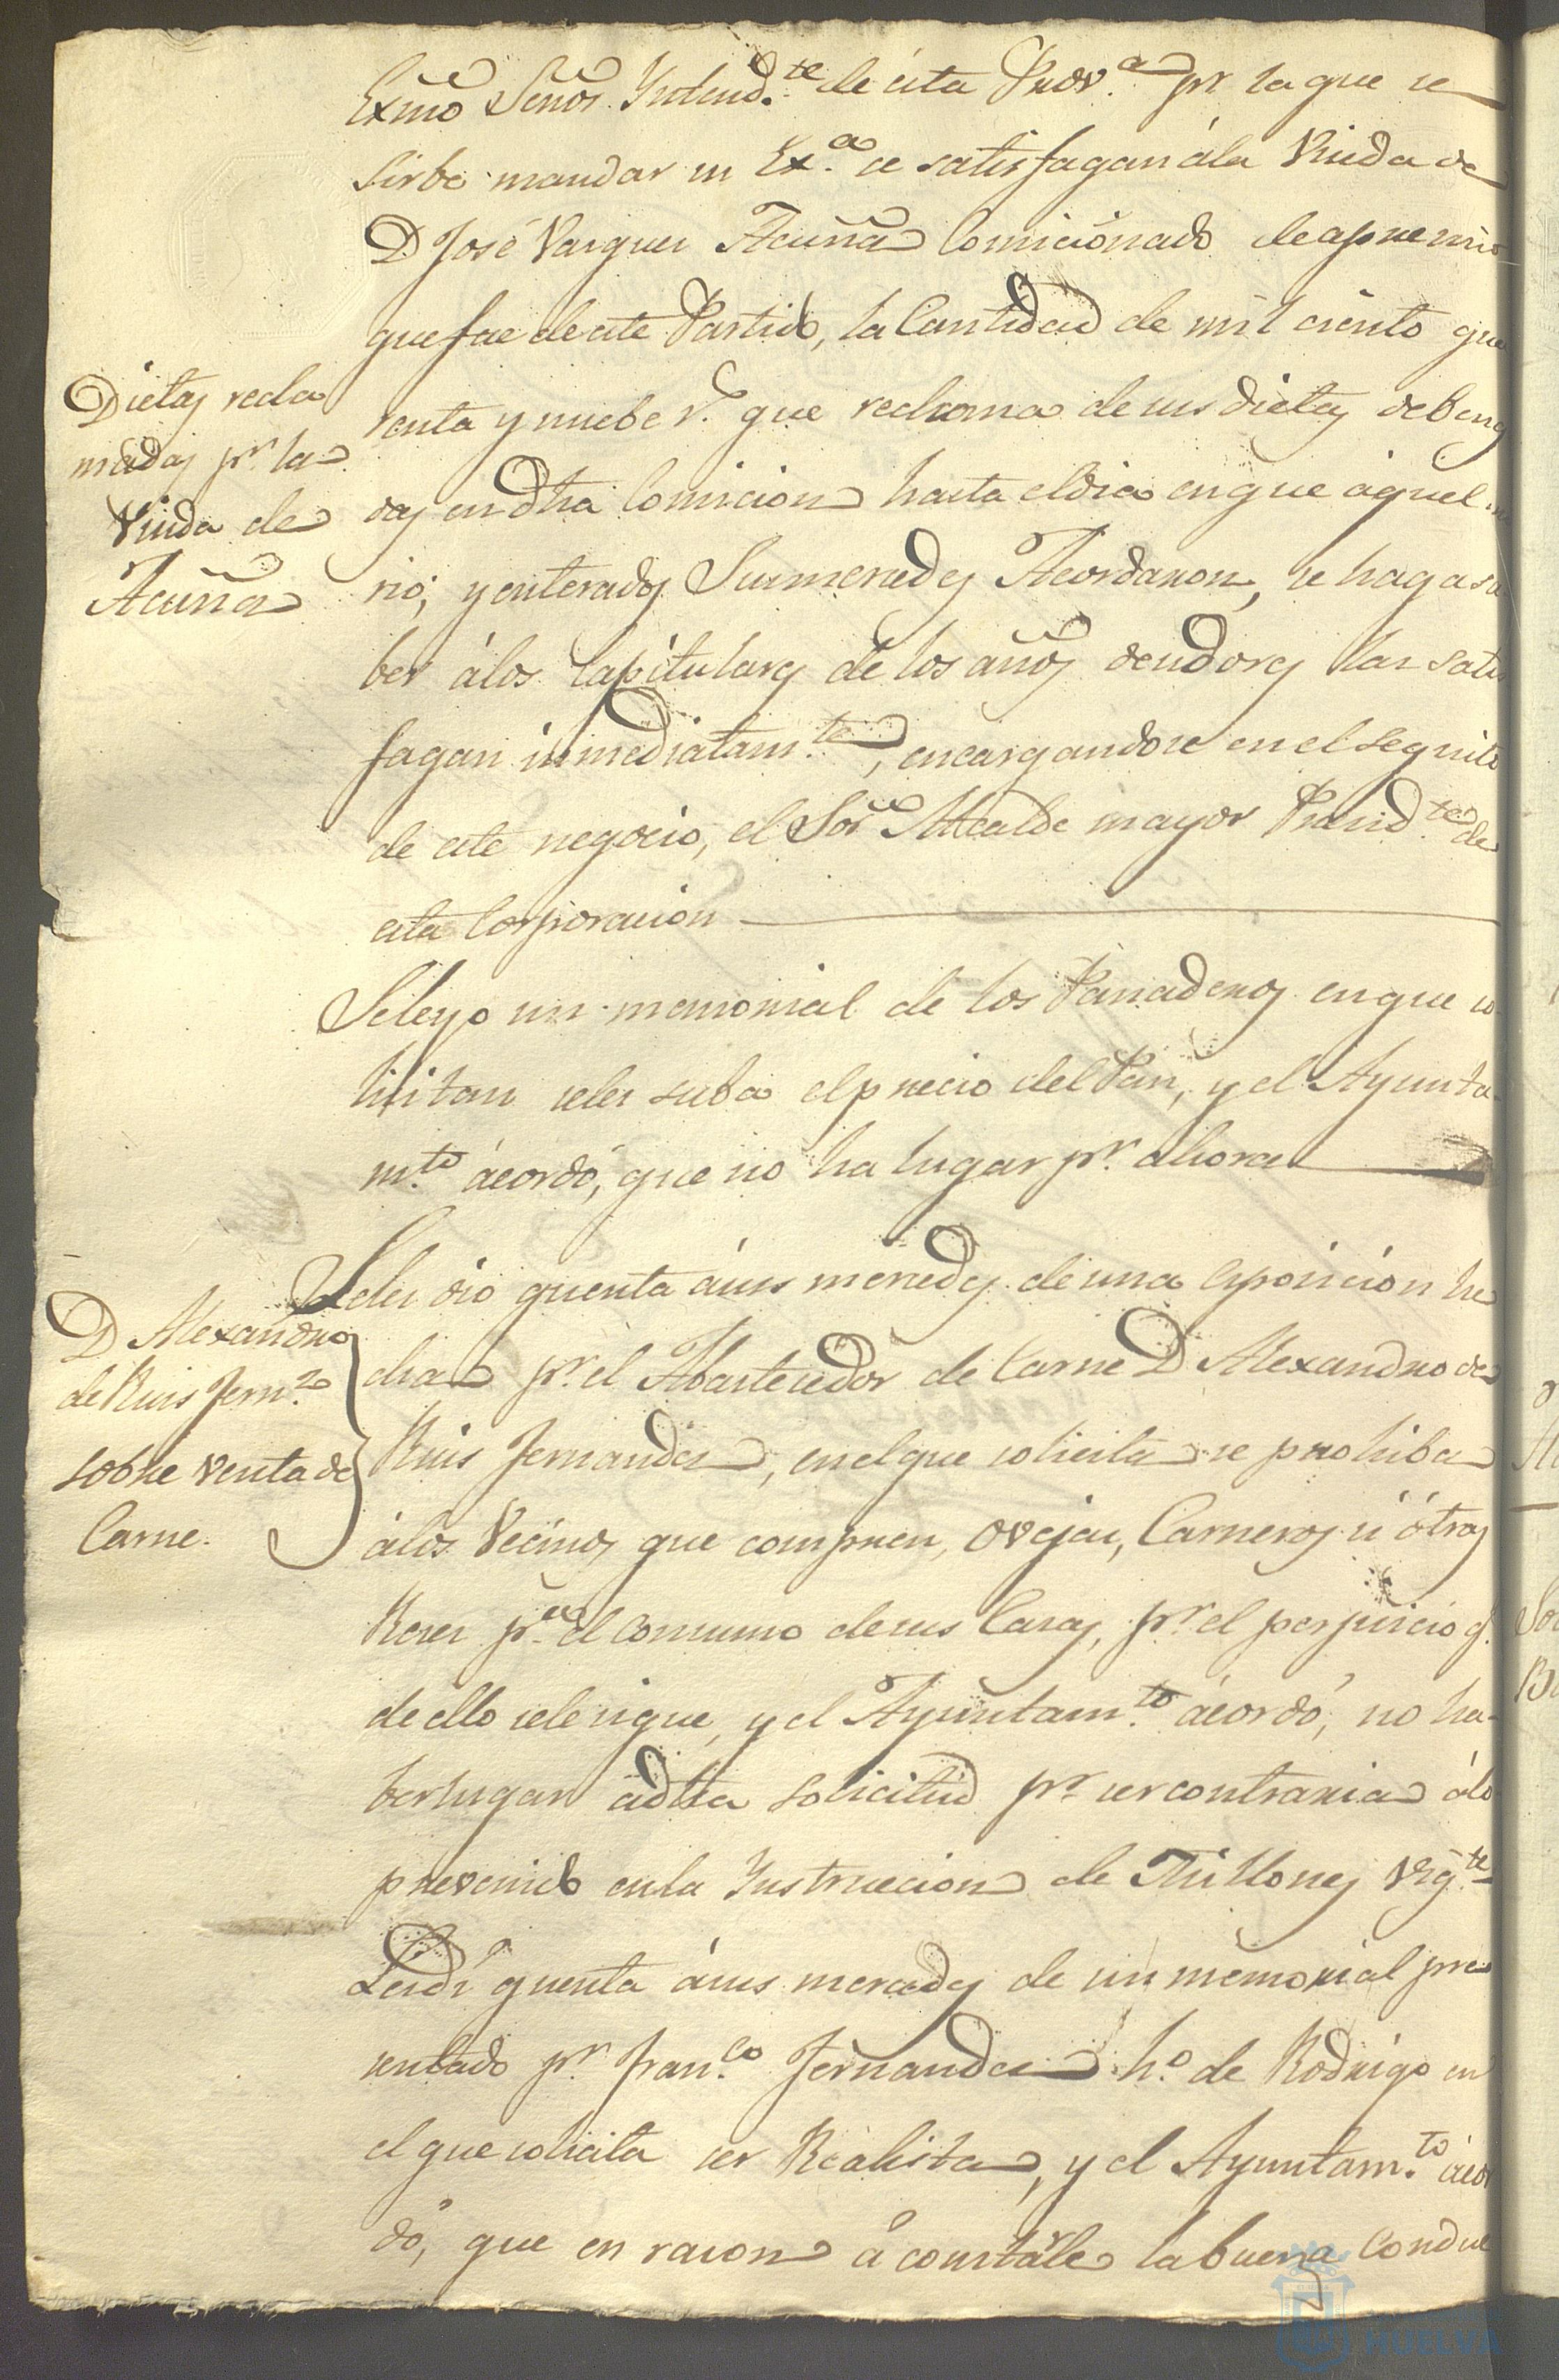 Exmõ Señor Yntend.te de esta Prov.a pr la que se
sirbe mandar su Ex.a se satisfagan á la Viuda de
D José Vasques Acuña Comicionado de apremio
que fue de este Partido, la Cantidad de mil ciento qua
Dietas recla
madas pr. la
Viuda de
Acuña
renta y nuebe r.s que reclama de sus dietas debenga
das en dha Comicion hasta el dia en que aquel mu
rió; y enterados Sus mercedes Acordaron, se haga sa
ber á los Capitulares de los años deudores las satis
fagan inmediatam.te, encargandose en el seguito
de este negocio, el Sor Alcalde mayor Presid.te de
esta Corporacion
Se leyo un memorial de los Panaderos en que so
licitan se les suba el precio del Pan, y el Ayunta
m.to ácordó, que no ha lugar pr. ahora
D Alexandro
de Ruis Fern.z
sobre venta de
Carne.
Se les dio quenta á sus mercedes de una esposicion he
cha pr. el Abastecedor de Carne D Alexandro de
Ruis Fernandes, en el que solicita se prohiba
á los Vecinos que compren, Ovejas, Carneros ú ótras
Reses p.a el consumo de sus Casas, pr. el perjuicio q.
de ello se le sigue, y el Ayuntam.to ácordó, no ha-
ber lugar a dha solicitud pr. ser contraria á lo
prevenido en la Ynstruccion de Millones Vig.te
Les di quenta á sus mercedes de un memorial pre
sentado pr. Fran.co Fernandes h.o de Rodrigo en
el que solicita ser Realista, y el Ayuntam.to ácor
dó, que en rason á constarle la buena Conduc
HUELVA